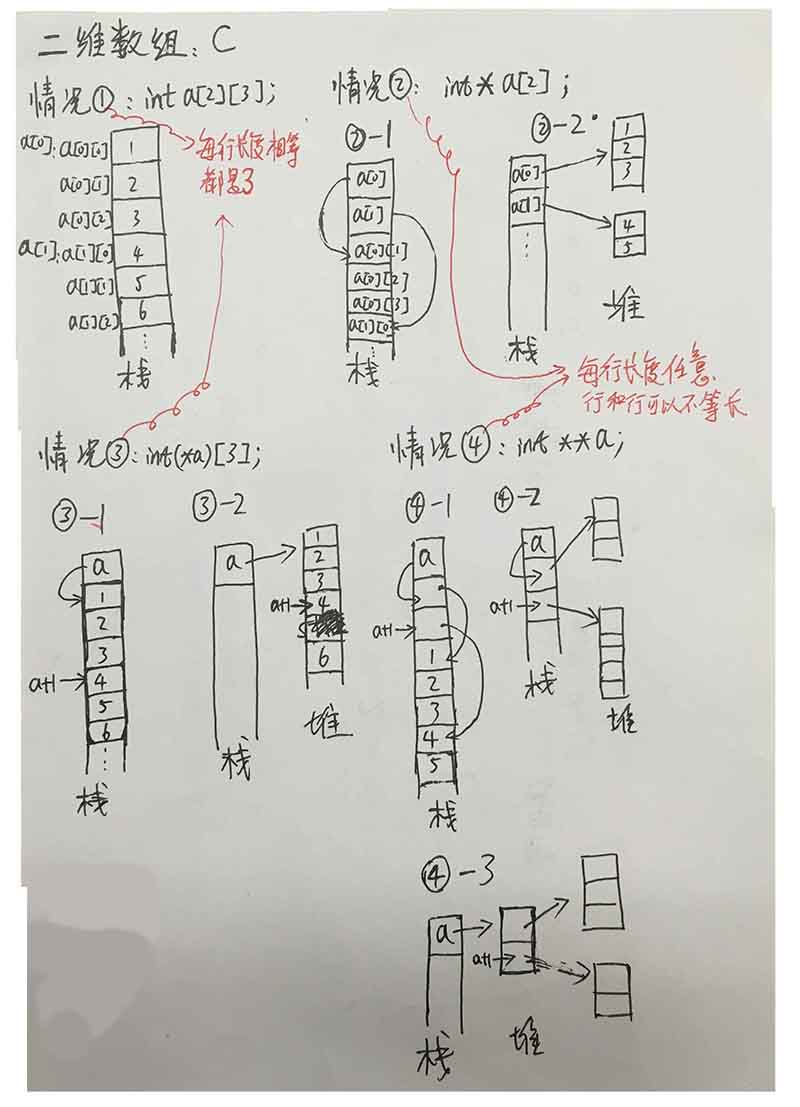 二维数组：C
情况①：int a[2][3];
a[0]：a[0][0] 1
a[0][1] 2
a[0][2] 3
a[1]：a[1][0] 4
a[1][1] 5
a[1][2] 6
⋮
栈
每行长度相等
都是3
情况②： int* a[2];
②-1
a[0]
a[1]
a[0][1]
a[0][2]
a[0][3]
a[1][0]
栈
②-2
a[0]
a[1]
⋮
栈
1
2
3
4
5
堆
每行长度任意，
行和行可以不等长
情况③：int(*a)[3];
③-1
a
1
2
3
a+1 4
5
6
⋮
栈
③-2
a
栈
1
2
3
a+1 4
5
6
堆
情况④：int **a;
④-1
a
a+1
1
2
3
4
5
栈
④-2
a
a+1
栈
堆
④-3
a
a+1
栈
堆